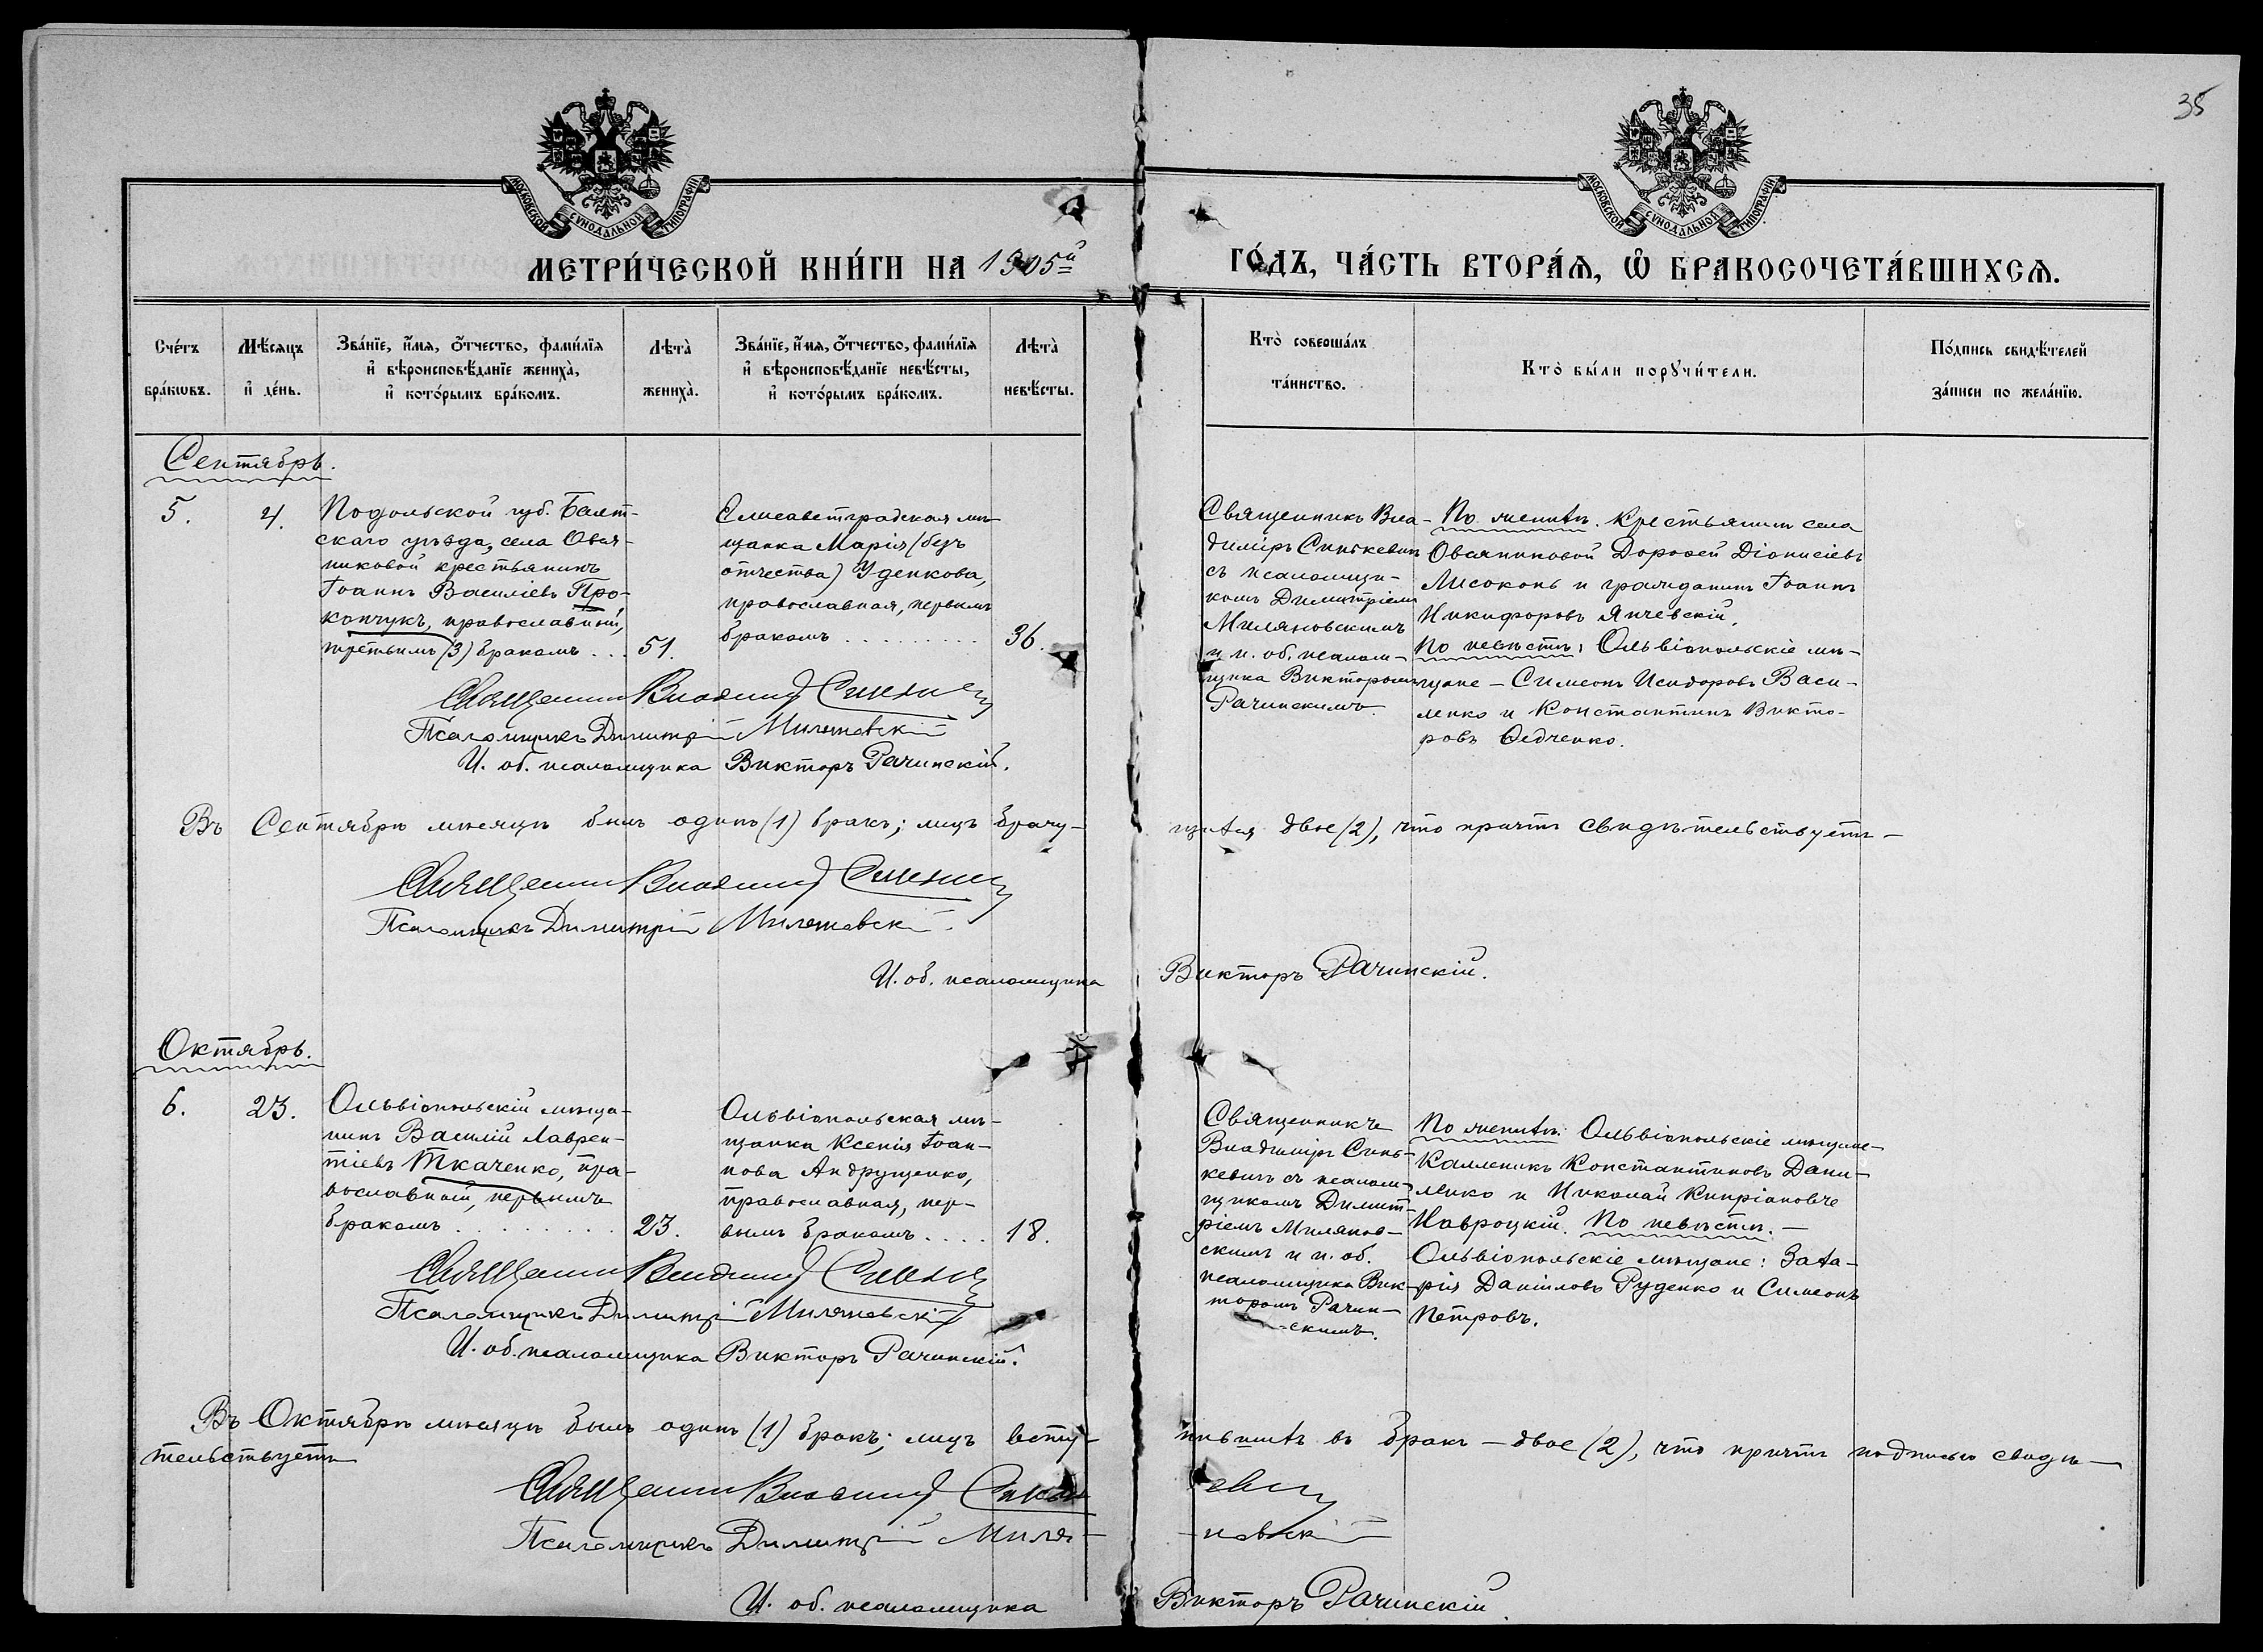 35
МОСКОВСКОЙ СѴНОДАЛЬНОЙ ТИПОГРАФІИ
МОСКОВСКОЙ СѴНОДАЛЬНОЙ ТИПОГРАФІИ
МЕТРИ́ЧЕСКОЙ КНИ́ГИ НА 1905й
ГО́ДЪ, ЧА́СТЬ ВТОРА́Ѧ, Ѽ БРАКОСОЧЕТА́ВШИХСѦ.
Сче́тъ
бра́кѡвъ.
Мѣ́сяцъ
и҆ де́нь.
Зва́нїе, и҆́мѧ, ѻ҆́тчество, фамі́лїѧ
и҆ вѣроисповѣ́данїе жениха̀,
и҆ кото́рымъ бра́комъ.
Лѣта̀
жениха̀.
Зва́нїе, и҆́мѧ, ѻ҆́тчество, фамі́лїѧ
и҆ вѣроисповѣ́данїе невѣ́сты,
и҆ кото́рымъ бра́комъ.
Лѣта̀
невѣ́сты.
Кто̀ соверша́лъ
та́инство.
Кто̀ бы́ли порꙋчи́тели.
По́дпись свидѣ́телей
за́писи по жела́нїю.
Сентябрь.
5.
4.
Подольской губ. Балт-
скаго уѣзда, села Овся-
никовой крестьянинъ
Іоаннъ Василіевъ Про-
копчукъ, православный,
третьимъ (3) бракомъ . . .
51.
Елисаветградская мѣ-
щанка Марія (безъ
отчества) Уденкова,
православная, первымъ
бракомъ . . . . . . . . .
36.
Священникъ Вла-
диміръ Синькевичъ
съ псаломщи-
комъ Димитріемъ
Миляновскимъ
и и. об. псалом-
щика Викторомъ
Рачинскимъ.
По женихѣ. Крестьянинъ села
Овсяниковой Дорофей Діонисіевъ
Лисоконь и гражданинъ Іоаннъ
Никифоровъ Янчевскій.
По невѣстѣ: Ольвіопольскіе мѣ-
щане — Симеонъ Исидоровъ Васи-
ленко и Константинъ Викто-
ровъ Федченко.
Священникъ Владиміръ Синькевичъ
Псаломщикъ Димитрій Миляновскій
И. об. псаломщика Викторъ Рачинскій.
Въ Сентябрѣ мѣсяцѣ былъ одинъ (1) бракъ; лицъ брачу-
щихся двое (2), что причтъ свидѣтельствуетъ —
Священникъ Владиміръ Синькевичъ
Псаломщикъ Димитрій Миляновскій.
И. об. псаломщика Викторъ Рачинскій.
Октябрь.
6.
23.
Ольвіопольскій мѣща-
нинъ Василій Лаврен-
тіевъ Ткаченко, пра-
вославный, первымъ
бракомъ . . . . . . . . .
23.
Ольвіопольская мѣ-
щанка Ксенія Іоан-
нова Андрущенко,
православная, пер-
вымъ бракомъ . . . .
18.
Священникъ
Владиміръ Синь-
кевичъ съ псалом-
щикомъ Димит-
ріемъ Милянов-
скимъ и и. об.
псаломщика Вик-
торомъ Рачин-
скимъ.
По женихѣ: Ольвіопольскіе мѣщане —
Каллиникъ Константиновъ Дани-
ленко и Николай Кипріановъ
Навроцкій. По невѣстѣ. —
Ольвіопольскіе мѣщане: Заха-
рія Даніиловъ Руденко и Симеонъ
Петровъ.
Священникъ Владиміръ Синькевичъ
Псаломщикъ Димитрій Миляновскій
И. об. псаломщика Викторъ Рачинскій.
Въ Октябрѣ мѣсяцѣ былъ одинъ (1) бракъ; лицъ всту-
пившихъ въ бракъ — двое (2), что причтъ подписью свидѣ-
тельствуетъ
Священникъ Владиміръ Синькевичъ
Псаломщикъ Димитрій Миля-
новскій
И. об. псаломщика Викторъ Рачинскій.